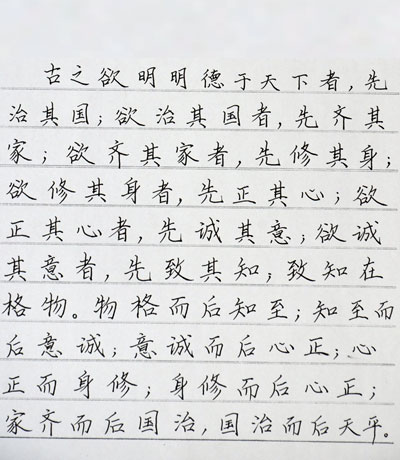 古之欲明明德于天下者,先
治其国;欲治其国者,先齐其
家;欲齐其家者,先修其身;
欲修其身者,先正其心;欲
正其心者,先诚其意;欲诚
其意者,先致其知;致知在
格物。物格而后知至;知至而
后意诚;意诚而后心正;心
正而身修;身修而后心正;
家齐而后国治,国治而后天平。